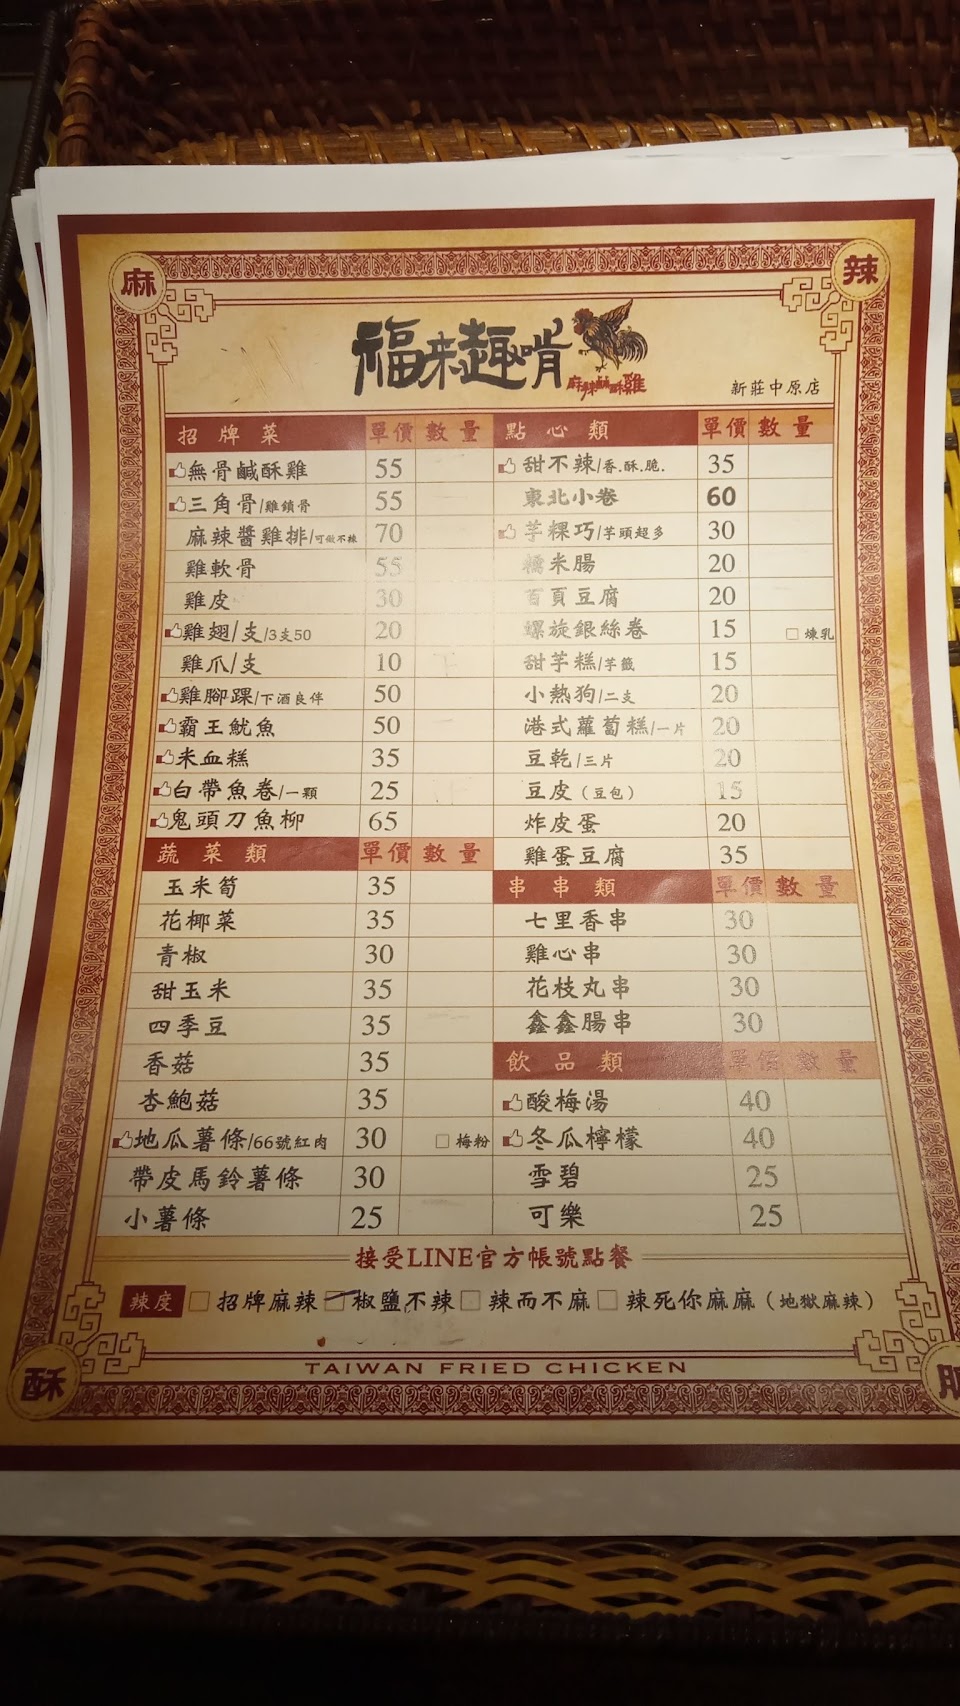 麻
辣
福來趣啃
麻辣鹹酥雞
新莊中原店
招牌菜 單價 數量
無骨鹹酥雞 55
三角骨/雞鎖骨 55
麻辣醬雞排/可做不辣 70
雞軟骨 55
雞皮 30
雞翅/支/3支50 20
雞爪/支 10
雞腳踝/下酒良伴 50
霸王魷魚 50
米血糕 35
白帶魚卷/一顆 25
鬼頭刀魚柳 65
蔬菜類 單價 數量
玉米筍 35
花椰菜 35
青椒 30
甜玉米 35
四季豆 35
香菇 35
杏鮑菇 35
地瓜薯條/66號紅肉 30 □梅粉
帶皮馬鈴薯條 30
小薯條 25
點心類 單價 數量
甜不辣/香.酥.脆. 35
東北小卷 60
芋粿巧/芋頭超多 30
糯米腸 20
百頁豆腐 20
螺旋銀絲卷 15 □煉乳
甜芋糕/芋籤 15
小熱狗/二支 20
港式蘿蔔糕/一片 20
豆乾/三片 20
豆皮(豆包) 15
炸皮蛋 20
雞蛋豆腐 35
串串類 單價 數量
七里香串 30
雞心串 30
花枝丸串 30
鑫鑫腸串 30
飲品類 單價 數量
酸梅湯 40
冬瓜檸檬 40
雪碧 25
可樂 25
接受LINE官方帳號點餐
辣度 □招牌麻辣 □椒鹽不辣 □辣而不麻 □辣死你麻麻(地獄麻辣)
TAIWAN FRIED CHICKEN
酥